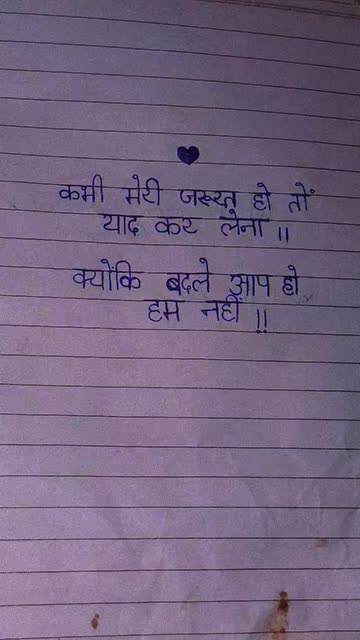 कभी मेरी जरूरत हो तों
याद कर लेना ।।
क्योकि बदले आप हो
हम नहीं ।।